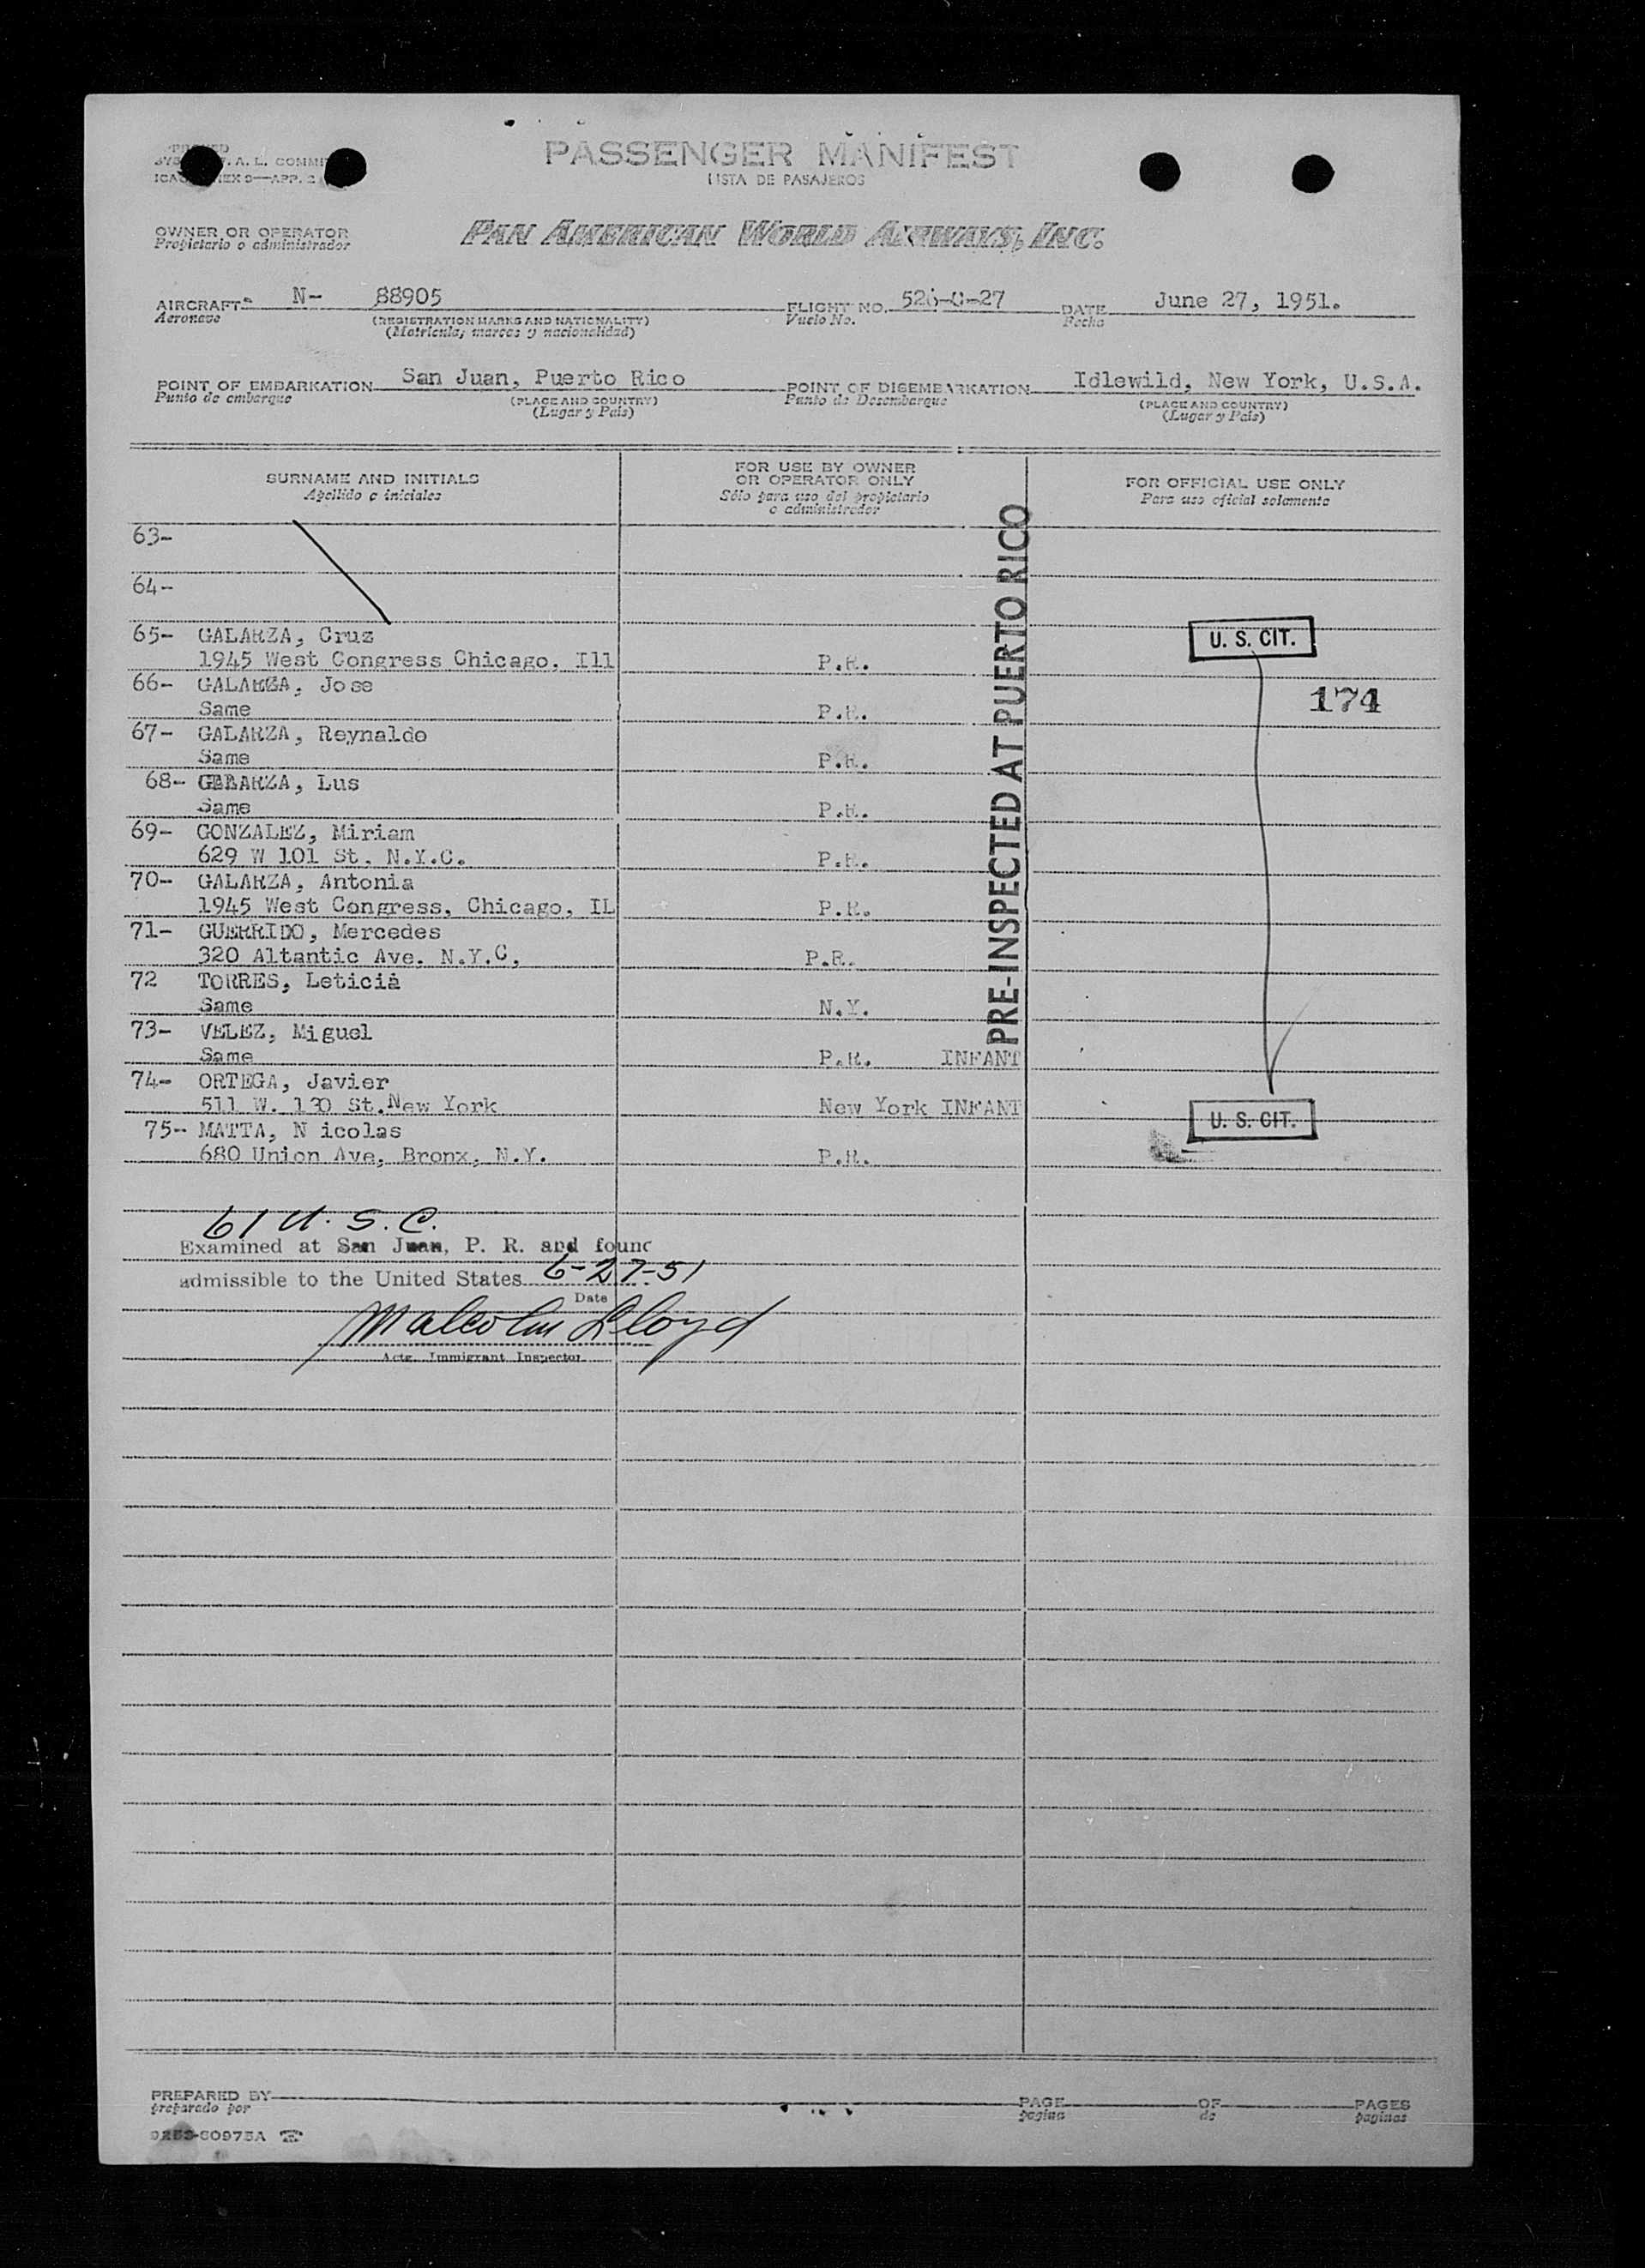 PASSENGER MANIFEST
LISTA DE PASAJEROS
A. L. COMMI
OWNER OR OPERATOR
Propietario o administrador
PAN AMERICAN WORLD AIRWAYS, INC.
AIRCRAFT N- 88905 FLIGHT NO. DATE June 27, 1951.
Aeronave (REGISTRATION MARKS AND NATIONALITY) Vuelo No. Fecha
(Matricula, marcas y nacionalidad)
POINT OF EMBARKATION San Juan, Puerto Rico POINT OF DISEMBARKATION Idlewild, New York, U.S.A.
Punto de embarque (PLACE AND COUNTRY) Punto de Desembarque (PLACE AND COUNTRY)
(Lugar y Pais) (Lugar y Pais)
SURNAME AND INITIALS FOR USE BY OWNER OR OPERATOR ONLY FOR OFFICIAL USE ONLY
Apellido e iniciales Sólo para uso del propietario o administrador Para uso oficial solamente
PRE-INSPECTED AT PUERTO RICO
63-
64-
65- GALARZA, Cruz U. S. CIT.
1945 West Congress Chicago, Ill P.R.
66- GALARZA, Jose 174
Same P.R.
67- GALARZA, Reynaldo
Same P.R.
68- GALARZA, Lus
Same P.R.
69- GONZALEZ, Miriam
629 W 101 St. N.Y.C. P.R.
70- GALARZA, Antonia
1945 West Congress, Chicago, IL P.R.
71- GUERRIDO, Mercedes
320 Altantic Ave. N.Y.C. P.R.
72 TORRES, Leticia
Same N.Y.
73- VELEZ, Miguel
Same P.R. INFANT
74- ORTEGA, Javier
511 W. 130 St. New York New York INFANT U. S. CIT.
75- MATTA, N icolas
680 Union Ave, Bronx, N.Y. P.R.
61 U. S. C.
Examined at San Juan, P. R. and found
admissible to the United States 6-27-51
Date
Malcolm Lloyd
Actg. Immigrant Inspector
PREPARED BY PAGE OF PAGES
preparado por pagina de paginas